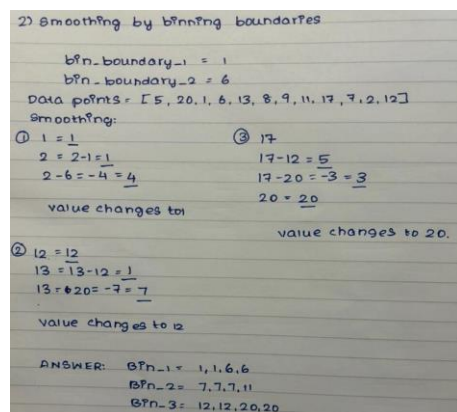 2) Smoothing by binning boundaries
bin_boundary_1 = 1
bin_boundary_2 = 6
Data points = [5, 20, 1, 6, 13, 8, 9, 11, 17, 7, 2, 12]
Smoothing:
① 1 = 1
2 = 2-1 = 1
2-6 = -4 = 4
value changes to1
③ 17
17-12 = 5
17-20 = -3 = 3
20 = 20
value changes to 20.
② 12 = 12
13 = 13-12 = 1
13 - 20 = -7 = 7
value changes to 12
ANSWER: Bin_1 = 1, 1, 6, 6
Bin_2 = 7, 7, 7, 11
Bin_3 = 12, 12, 20, 20